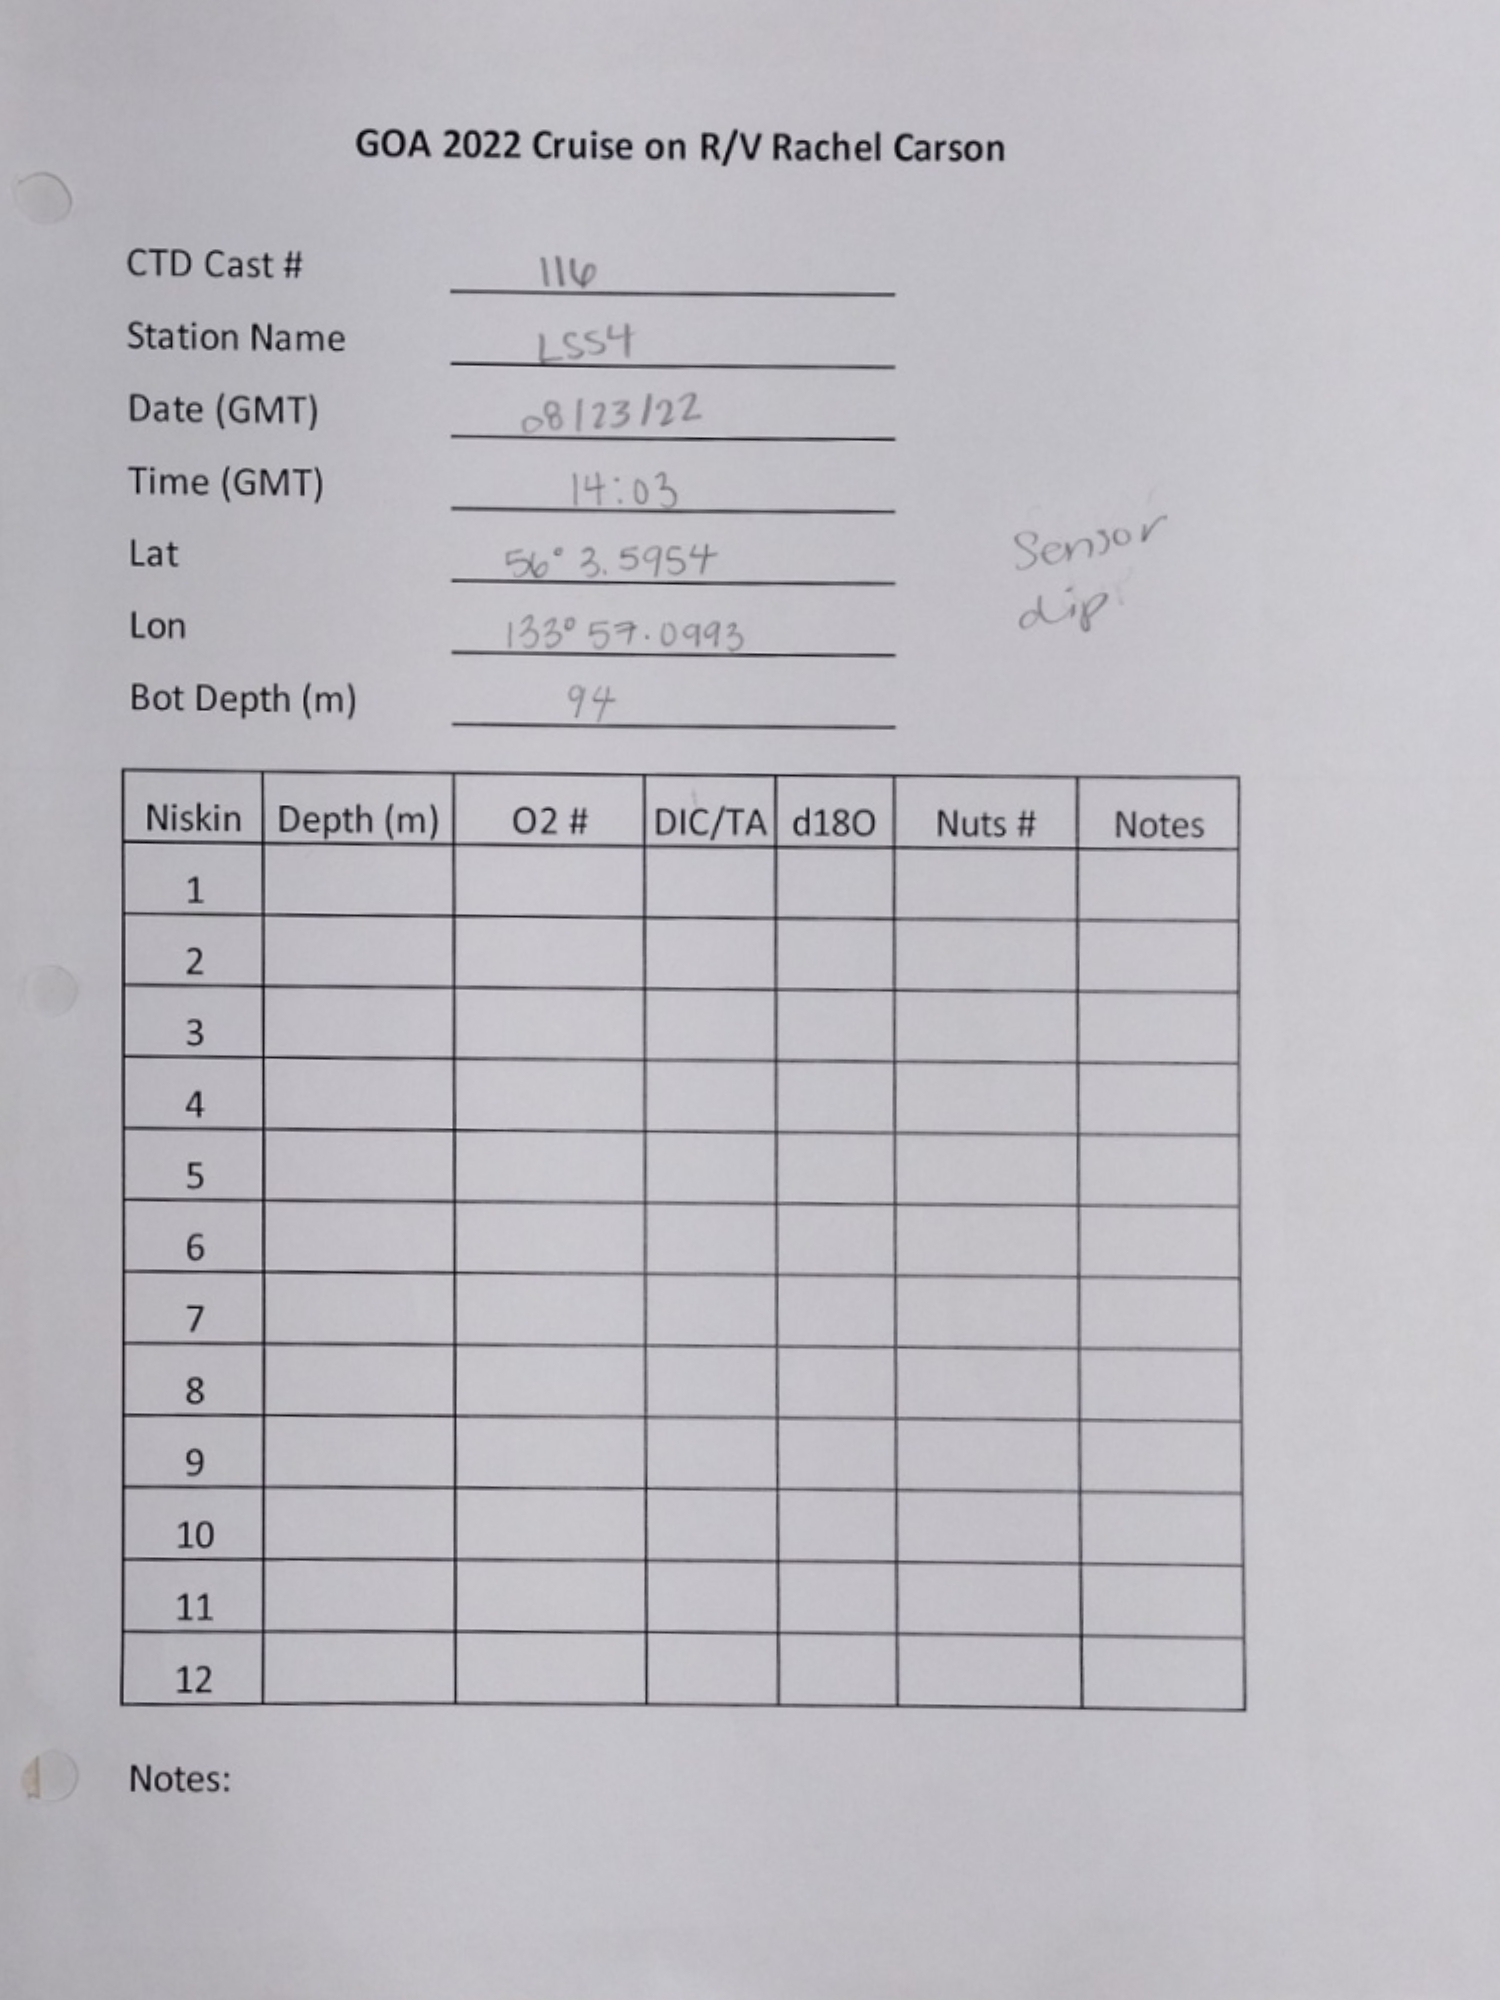 GOA 2022 Cruise on R/V Rachel Carson
CTD Cast # 116
Station Name LSS4
Date (GMT) 08/23/22
Time (GMT) 14:03
Lat 56° 3.5954
Lon 133° 57.0993
Sensor
dip
Bot Depth (m) 94
Niskin Depth (m) O2 # DIC/TA d18O Nuts # Notes
1
2
3
4
5
6
7
8
9
10
11
12
Notes: